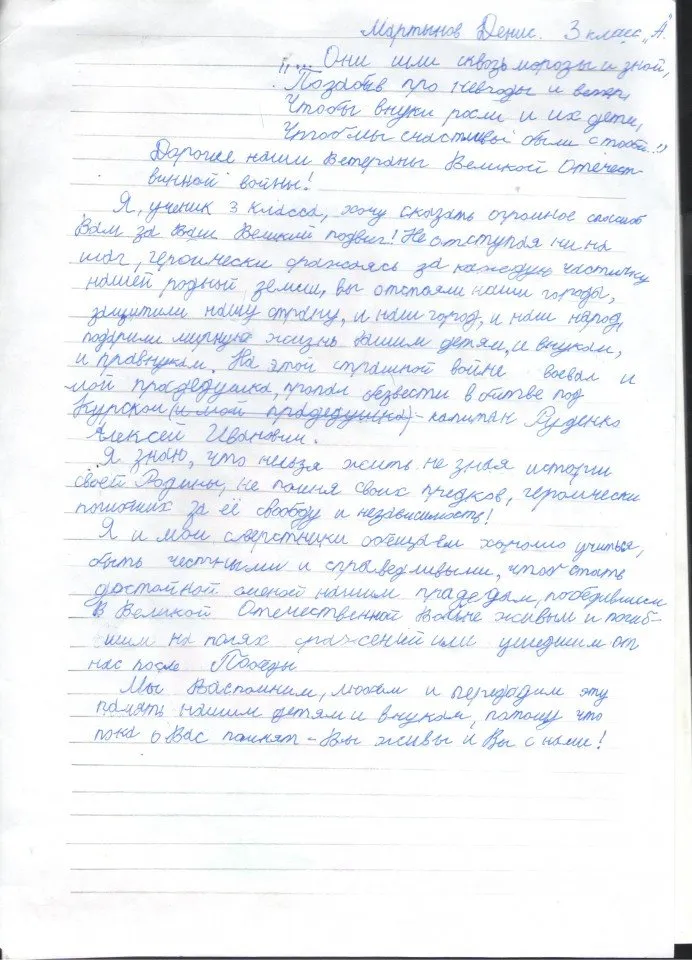 Мартынов Денис. 3 класс „А"
„... Они шли сквозь морозы и зной,
Позабыв про невзгоды и ветер,
Чтобы внуки росли и их дети,
Чтоб мы счастливы были с тобой..."
Дорогие наши Ветераны Великой Отечест-
винной войны!
Я, ученик 3 класса, хочу сказать огромное спосиоб
Вам за Ваш Великий подвиг! Не отступая ни на
шаг, героически сражаясь за каждую частичку
нашей родный земли, вы отстояли наши города,
защитили нашу страну, и наш город, и наш народ,
подарили мирную жизнь Вашим детям, и внукам,
и правнукам. На этой страшной войне воевал и
мой прадедушка, пропал безвести в битве под
Курской (и мой прадедушка) - капитан Руденко
Алексей Иванович.
Я знаю, что нельзя жить не зная истории
своей Родины, не помня своих предков, героически
погибших за её свободу и независимость!
Я и мои сверстники обещаем хорошо учиться,
быть честными и справедливыми, чтоб стать
достойной сменой нашим прадедам, победившим
в Великой Отечественной Войне живым и погиб-
шим на полях сражений или ушедшим от
нас после Победы
Мы Васпомним, любим и передадим эту
память нашим детям и внукам, потому что
пока о Вас помнят - Вы живы и Вы с нами!